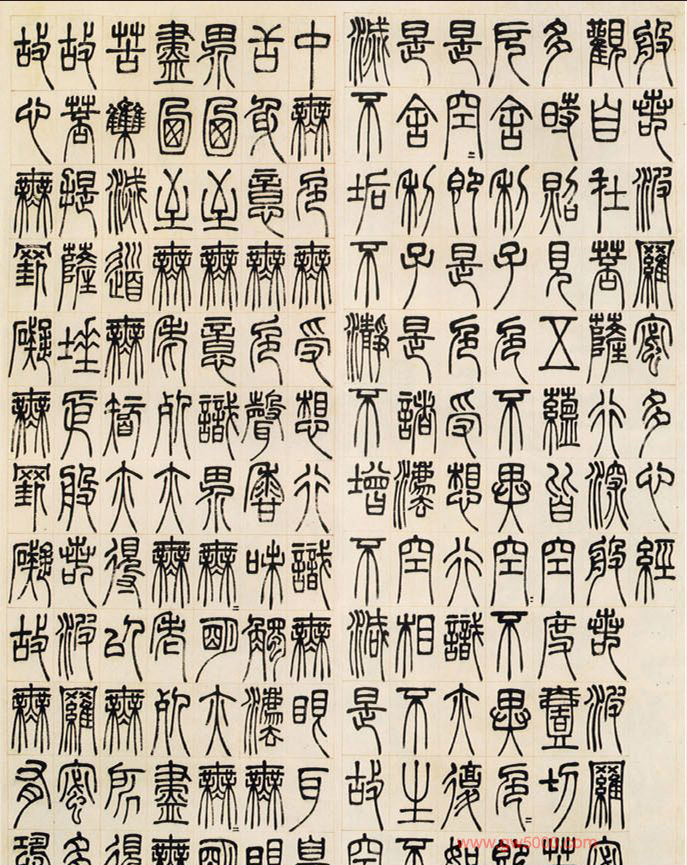 般若波羅蜜多心經
觀自在菩薩行深般若波羅蜜
多時照見五蘊皆空度一切苦
厄舍利子色不異空=不異色=即
是空=即是色受想行識亦復如
是舍利子是諸法空相不生不
滅不垢不淨不增不減是故空
中無色無受想行識無眼耳鼻
舌身意無色聲香味觸法無=眼
界乃至無意識界無=明亦無=明
盡乃至無老死亦無老死盡無
苦集滅道無智亦得以無所得
故菩提薩埵依般若波羅蜜多
故心無罣礙無罣礙故無有恐